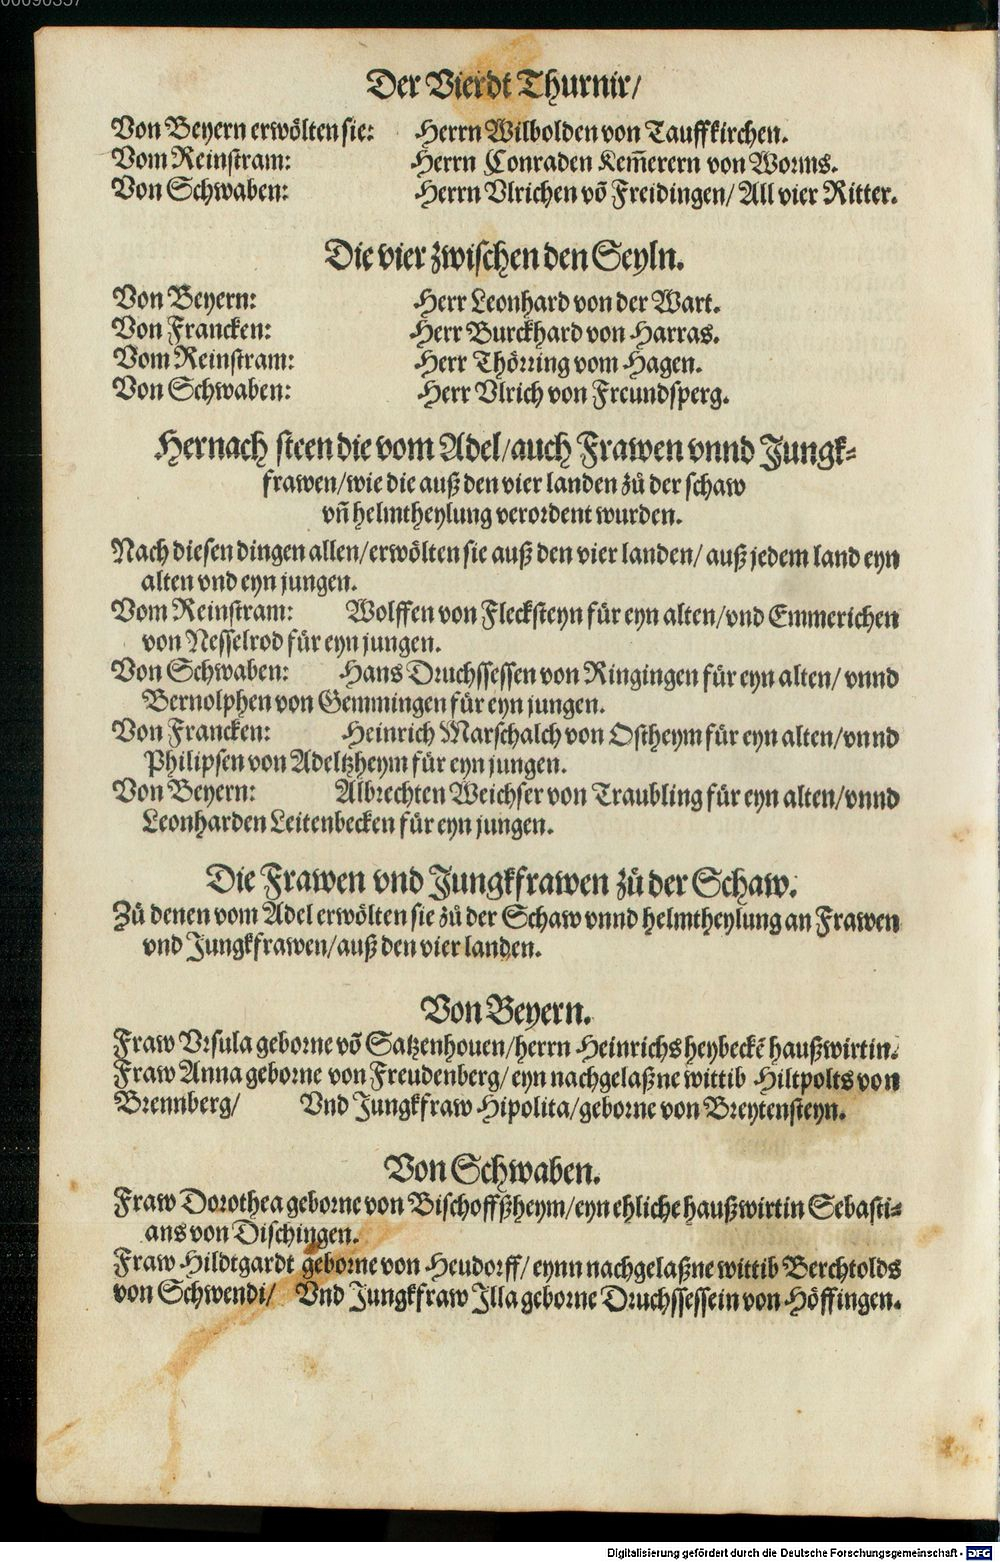 Der Vierdt Thurnir/
Von Beyern erwölten sie: Herrn Wilbolden von Tauffkirchen.
Vom Reinstram: Herrn Conraden Kem̃erern von Worms.
Von Schwaben: Herrn Vlrichen võ Freidingen/ All vier Ritter.
Die vier zwischen den Seyln.
Von Beyern: Herr Leonhard von der Wart.
Von Francken: Herr Burckhard von Harras.
Vom Reinstram: Herr Thörring vom Hagen.
Von Schwaben: Herr Vlrich von Freundsperg.
Hernach steen die vom Adel/auch Frawen vnnd Jungk-
frawen/wie die auß den vier landen zů der schaw
vñ helmtheylung verordent wurden.
Nach diesen dingen allen/erwölten sie auß den vier landen/ auß jedem land eyn
alten vnd eyn jungen.
Vom Reinstram: Wolffen von Flecksteyn für eyn alten/vnd Emmerichen
von Nesselrod für eyn jungen.
Von Schwaben: Hans Druchssessen von Ringingen für eyn alten/ vnnd
Bernolphen von Gemmingen für eyn jungen.
Von Francken: Heinrich Marschalch von Ostheym für eyn alten/vnnd
Philipsen von Adeltzheym für eyn jungen.
Von Beyern: Albrechten Weichser von Traubling für eyn alten/vnnd
Leonharden Leitenbecken für eyn jungen.
Die Frawen vnd Jungkfrawen zů der Schaw.
Zů denen vom Adel erwölten sie zů der Schaw vnnd helmtheylung an Frawen
vnd Jungkfrawen/auß den vier landen.
Von Beyern.
Fraw Vrsula geborne võ Satzenhouen/herrn Heinrichs heybeckẽ haußwirtin.
Fraw Anna geborne von Freudenberg/ eyn nachgelaßne wittib Hiltpolts von
Brennberg/ Vnd Jungkfraw Hipolita/geborne von Breytensteyn.
Von Schwaben.
Fraw Dorothea geborne von Bischoffßheym/eyn ehliche haußwirtin Sebasti-
ans von Dischingen.
Fraw Hildtgardt geborne von Heudorff/ eynn nachgelaßne wittib Berchtolds
von Schwendi/ Vnd Jungkfraw Illa geborne Druchssessein von Höffingen.
Digitalisierung gefördert durch die Deutsche Forschungsgemeinschaft - DFG